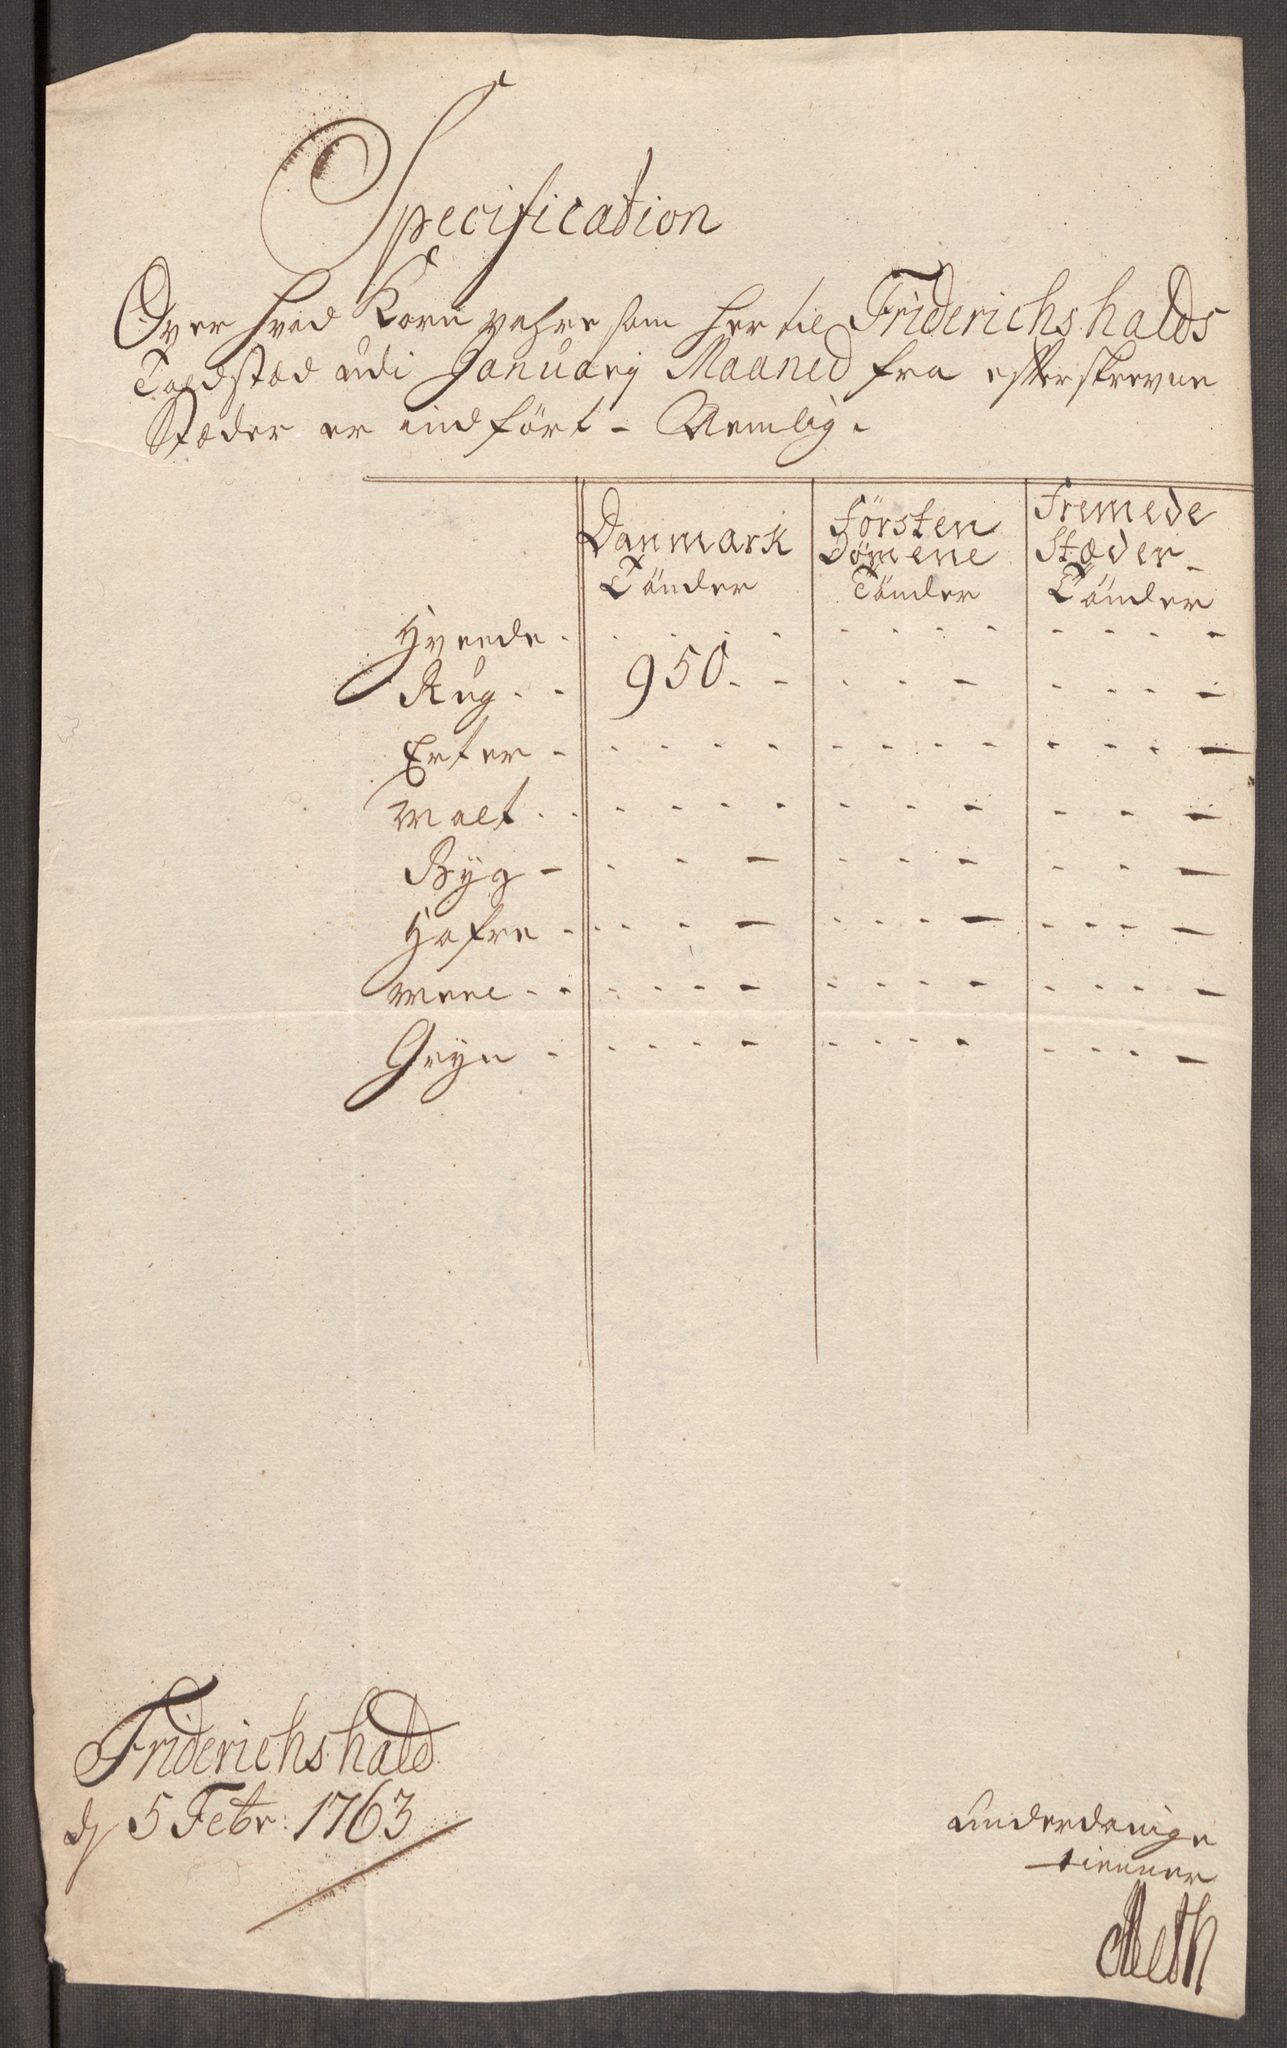 Specification
Over hvad Korn vahre som her til Friderichshalds
Toldstæd udi Januarij Maaned fra efterskrevne
Stæder er indført - Nemlig.
Danmark Försten Fremede
Dömene Stæder
Tönder Tönder Tönder
Hveede
Rug 950
Erter
Malt
Byg
Hafre
Meel
Gryn
Friderichshald
d 5 Febr: 1763
underdanige
tienner